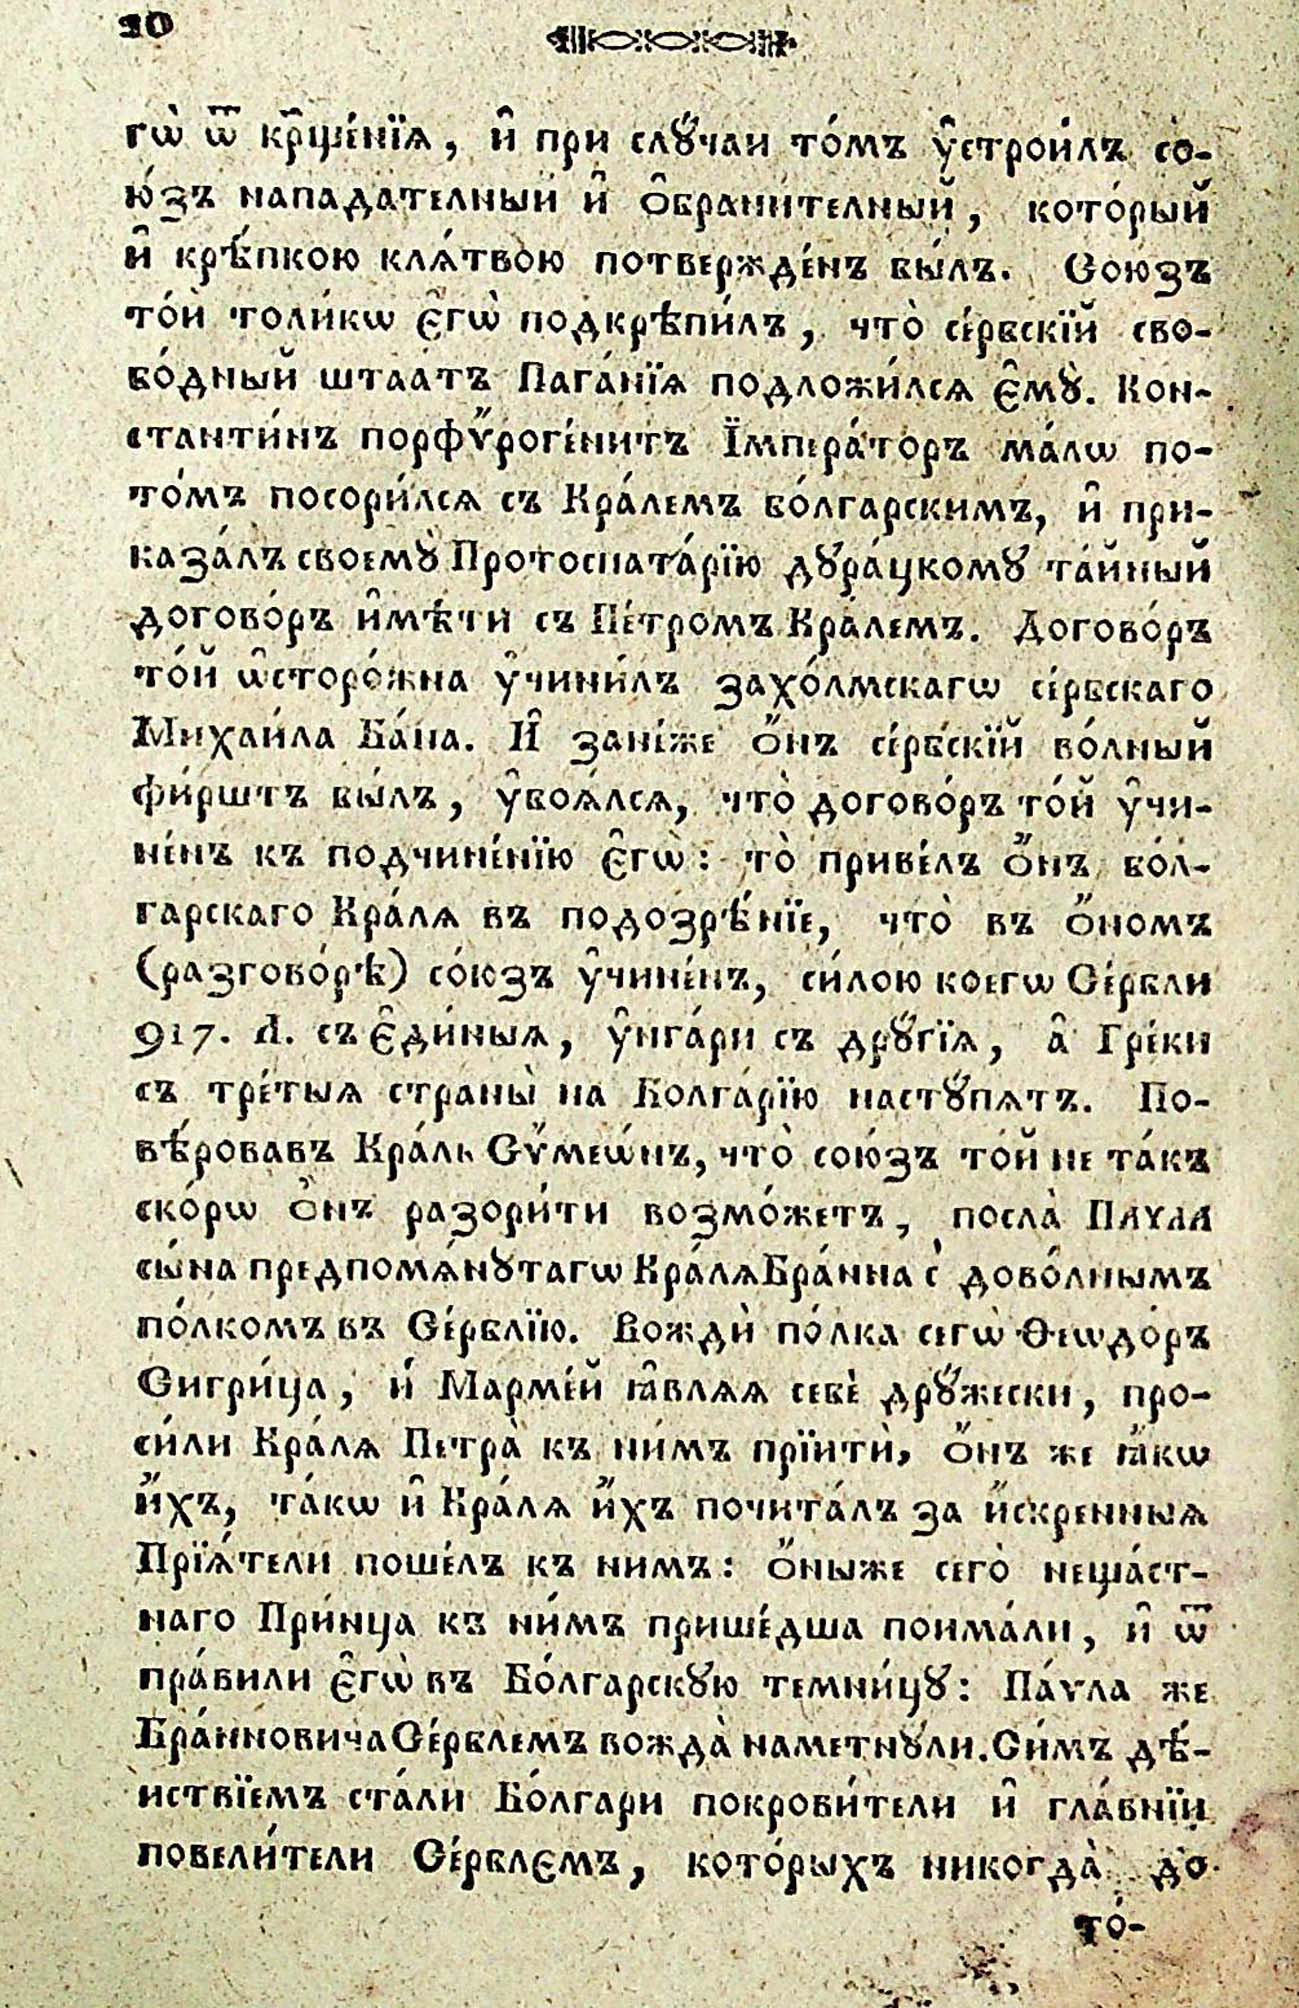 20
гѡ̀ ѿ кр҃щéнїѧ, и҆ при слꙋ́чаи то́мъ ᲂу҆строи́лъ со-
ю́зъ нападателный и҆ ѻ҆брани́телный, кото́рый
и҆ крѣ́пкою клѧ́твою потвержде́нъ бы́лъ. Союзъ
то́й толи́кѡ є҆гѡ̀ подкрѣпи́лъ, что̀ се́рбскїй сво-
бо́дный штаатъ Пага́нїѧ подложи́лсѧ є҆мꙋ̀. Кон-
стантинъ порфѷроге́нитъ Їмпера́торъ ма́лѡ по-
то́мъ посори́лсѧ съ Кра́лемъ бо́лгарскимъ, и҆ при-
каза́лъ своемꙋ̀ Протоспата́рїю дꙋра́цкомꙋ та́йный
догово́ръ и҆мѣ́ти съ Пе́тромъ Кра́лемъ. Догово́ръ
то́й ѡ҆сторо́жна ᲂу҆чини́лъ захо́лмскагѡ се́рбскаго
Михаи́ла Ба́на. И҆ зане́же ѻ҆́нъ се́рбскїй во́лный
фи́рштъ бы́лъ, ᲂу҆боѧ́лсѧ, что̀ догово́ръ то́й ᲂу҆чи-
не́нъ къ подчине́нїю є҆гѡ̀: то̀ приве́лъ ѻ҆́нъ бо́л-
гарскаго Кра́лѧ въ подозрѣ́нїе, что̀ въ ѻ҆́номъ
(разгово́рѣ) со́юзъ ᲂу҆чине́нъ, си́лою коегѡ Се́рбли
917. Л. съ є҆ди́ныѧ, ᲂу҆нга́ри съ дрꙋ́гїѧ, а҆ Гре́ки
съ тре́тыѧ страны̀ на Болга́рїю настꙋ́пѧтъ. По-
вѣ́ровавъ Кра́ль Сѷмеѡ́нъ, что̀ сою́зъ то́й не та́къ
ско́рѡ ѻ҆́нъ разори́ти возмо́жетъ, посла̀ Паѵла
сы́на предпомѧ́нꙋтагѡ Кра́лѧ Бра́нна с̾ дово́лнымъ
по́лкомъ въ Се́рблїю. Вожди̇̀ по́лка сегѡ̀ Ѳеѡдо́ръ
Сигри́ца, и҆́ Марме́й ꙗ҆влѧѧ себѐ дрꙋ́жески, про-
си́ли Кра́лѧ Петра̀ къ ни́мъ прїити̇̀, ѻ҆́нъ же ꙗ҆́кѡ
и҆́хъ, та́кѡ и҆ Кра́лѧ и҆́хъ почита́лъ за и҆́скренныѧ
Прїѧ́тели поше́лъ къ нимъ: ѻ҆́ныже сего̀ неща́ст-
наго При́нца къ ни́мъ прише́дша поима́ли, и҆ ѿ
пра́вили є҆гѡ̀ въ Бо́лгарскꙋю темни́цꙋ: Па́ѵла же
Бра́нновича Се́рблемъ вожда̀ наметнꙋ́ли. Си́мъ дѣ́-
иствїемъ ста́ли Бо́лгари покрови́тели и҆ гла́внїи
повели́тели Се́рблємъ, кото́рыхъ никогда̀ до
то́-